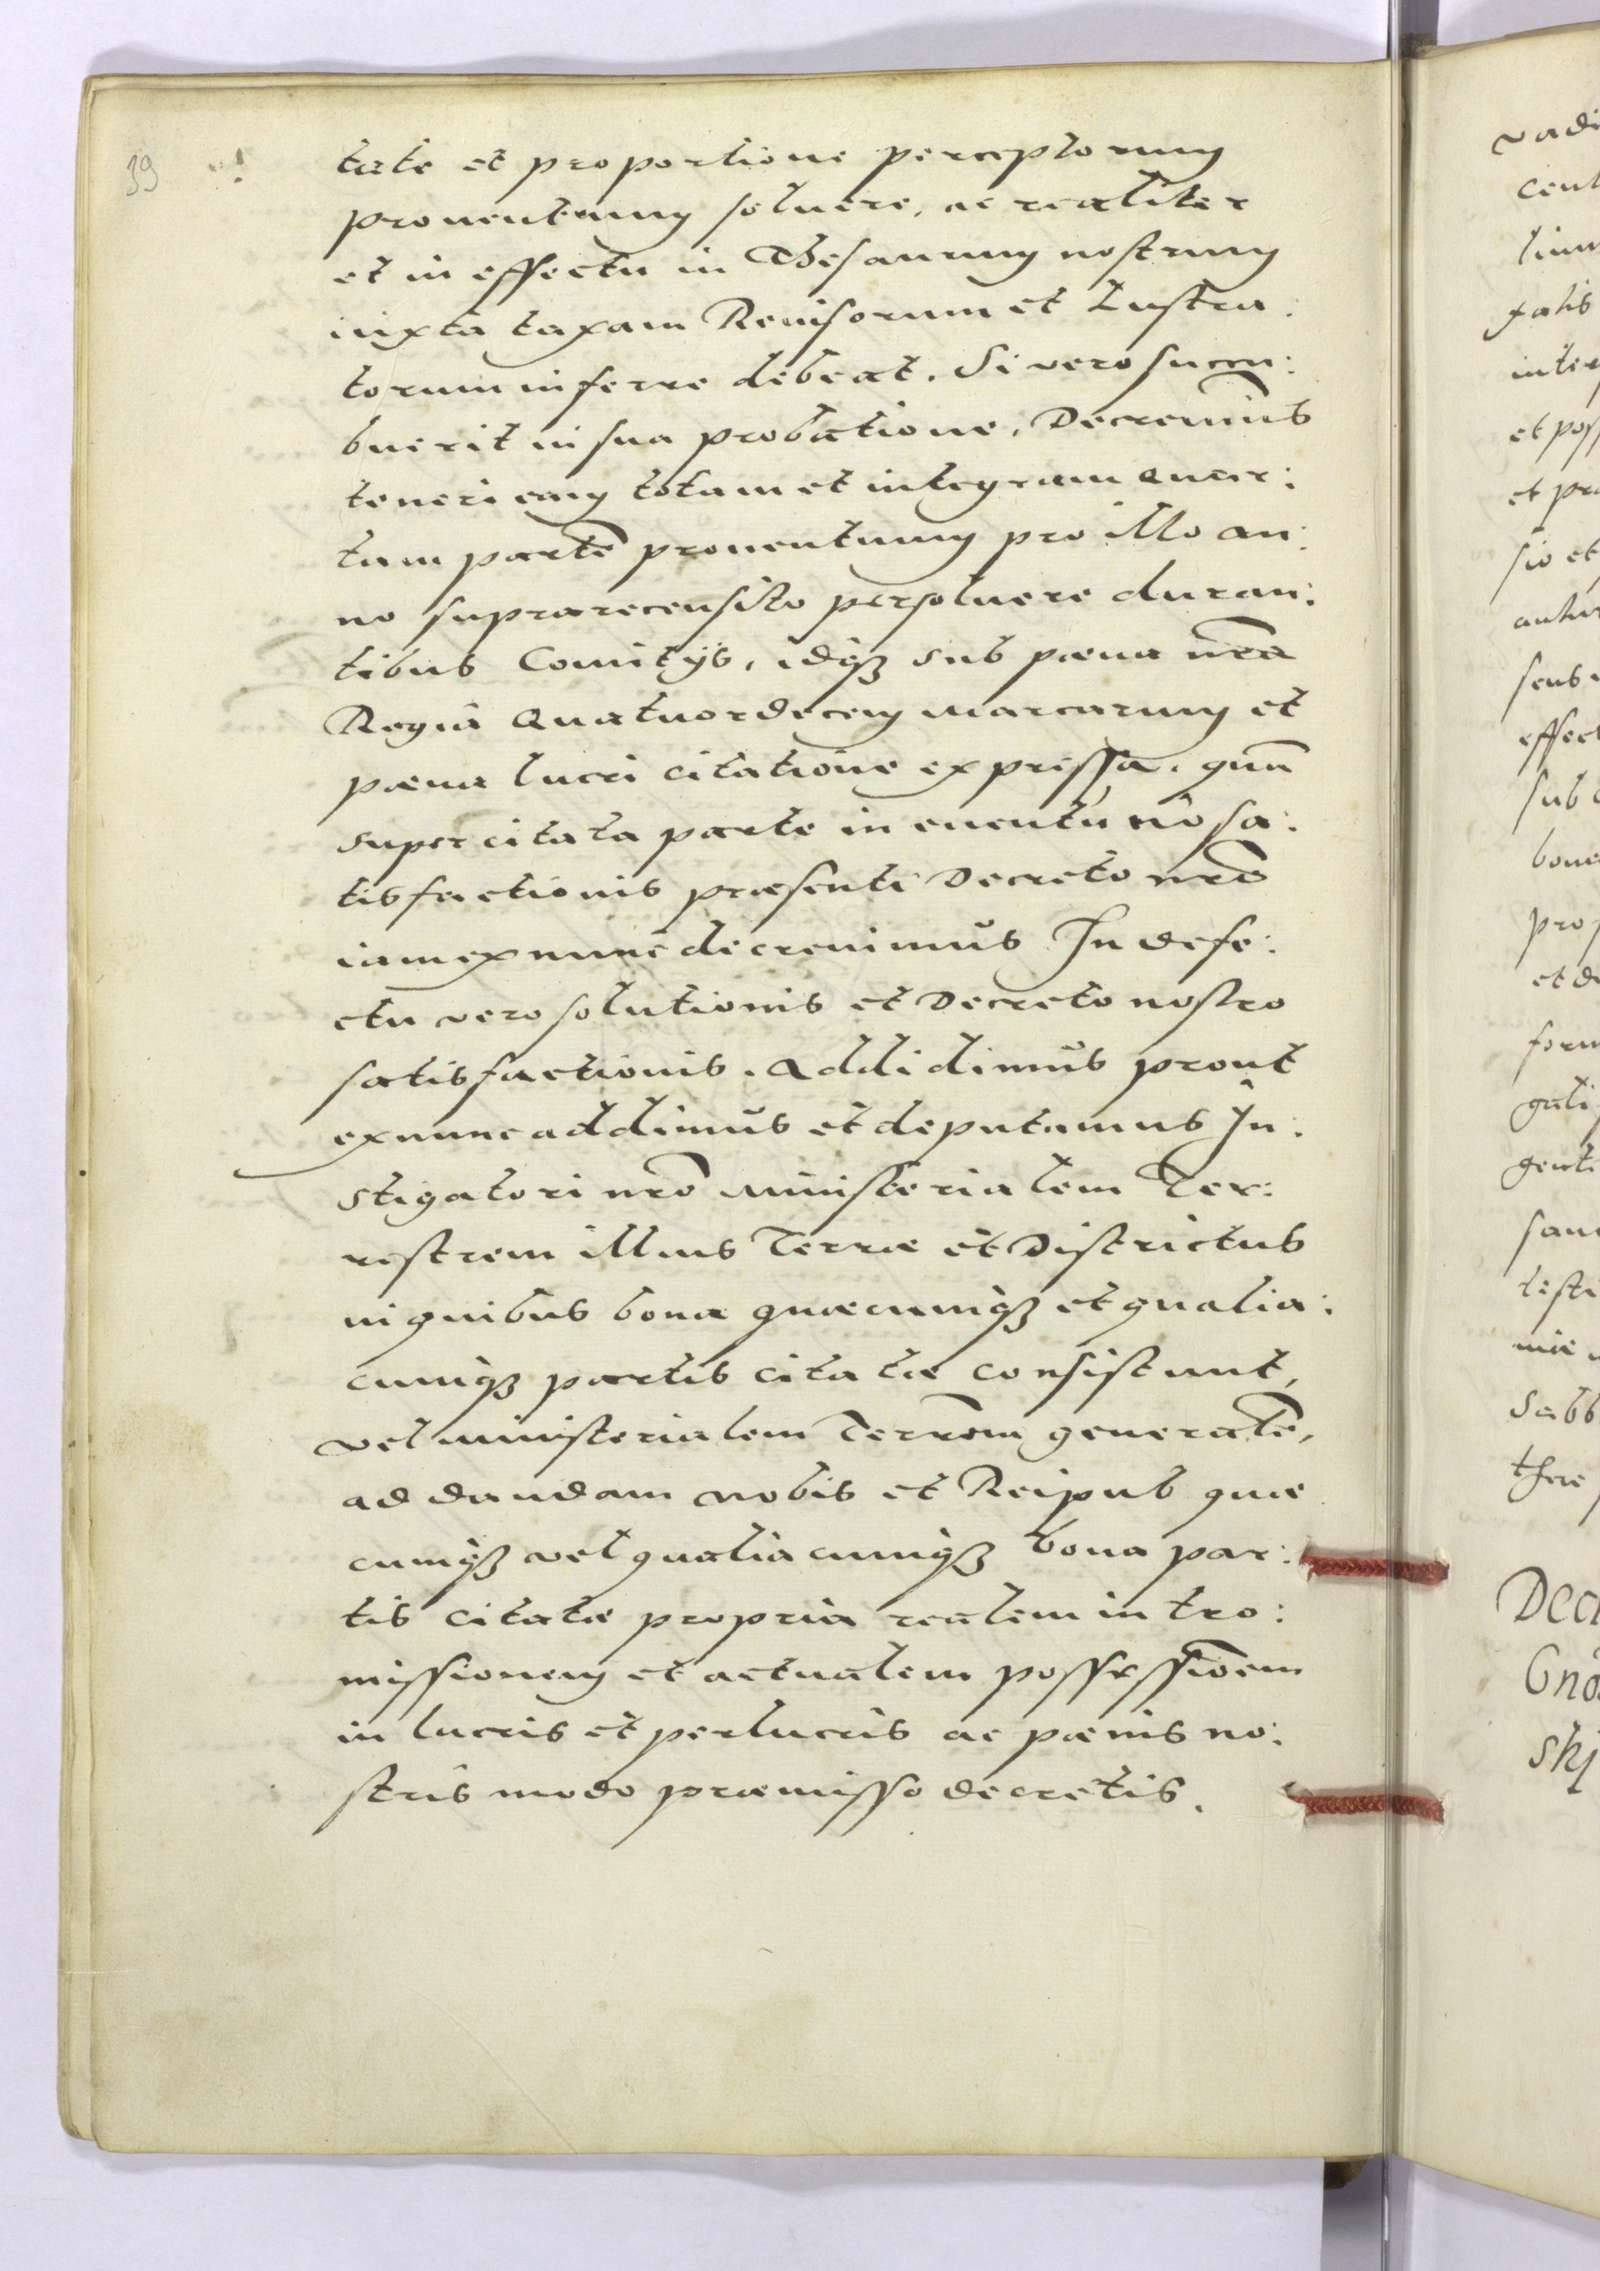 39
tate et proportione perceptorum
prouentuum soluere, ac realiter
et in effectu in Thesaurum nostrum
iuxta taxam Reuisorum et Lustra:
torum inferre debeat. Si vero succu:
buerit in sua probatione, Decreuimus
teneri eum totam et integram Quar:
tam partē prouentuum pro illo an:
no suprarecensito persoluere duran:
tibus Comitijs, idqȝ sub pæna nrā
Regia Quatuordecem marcarum et
pæna lucri citatione expressa, quā
super citata parte in euentu nō sa:
tisfactionis præsenti Decreto nrō
iam ex nunc decreuimus In defe:
ctu vero solutionis et Decreto nostro
satisfactionis. Addidimus prout
ex nunc addimus et deputamus In:
stigatori nrō ministerialem Ter:
restrem illius Terræ et Districtus
in quibus bona quæcumqȝ et qualia:
cumqȝ partis citatæ consistunt,
vel ministerialem Terrom generalē,
ad dandam nobis et Reipub quæ
cumqȝ vel qualiacumqȝ bona par:
tis citatæ propria realem intro:
missionem et actualem possessionem
in lucris et perlucris ac pænis no:
stris modo præmisso decretis.
vadi
cent
inter
et poss
et pra
sio et
sub
prop
et de
form
genti
testi
Sabb
Dec
Gno
skj